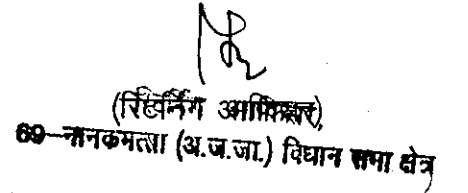 (रिटर्निंग आफिसर),
69—नानकमत्ता (अ.ज.जा.) विधान सभा क्षेत्र